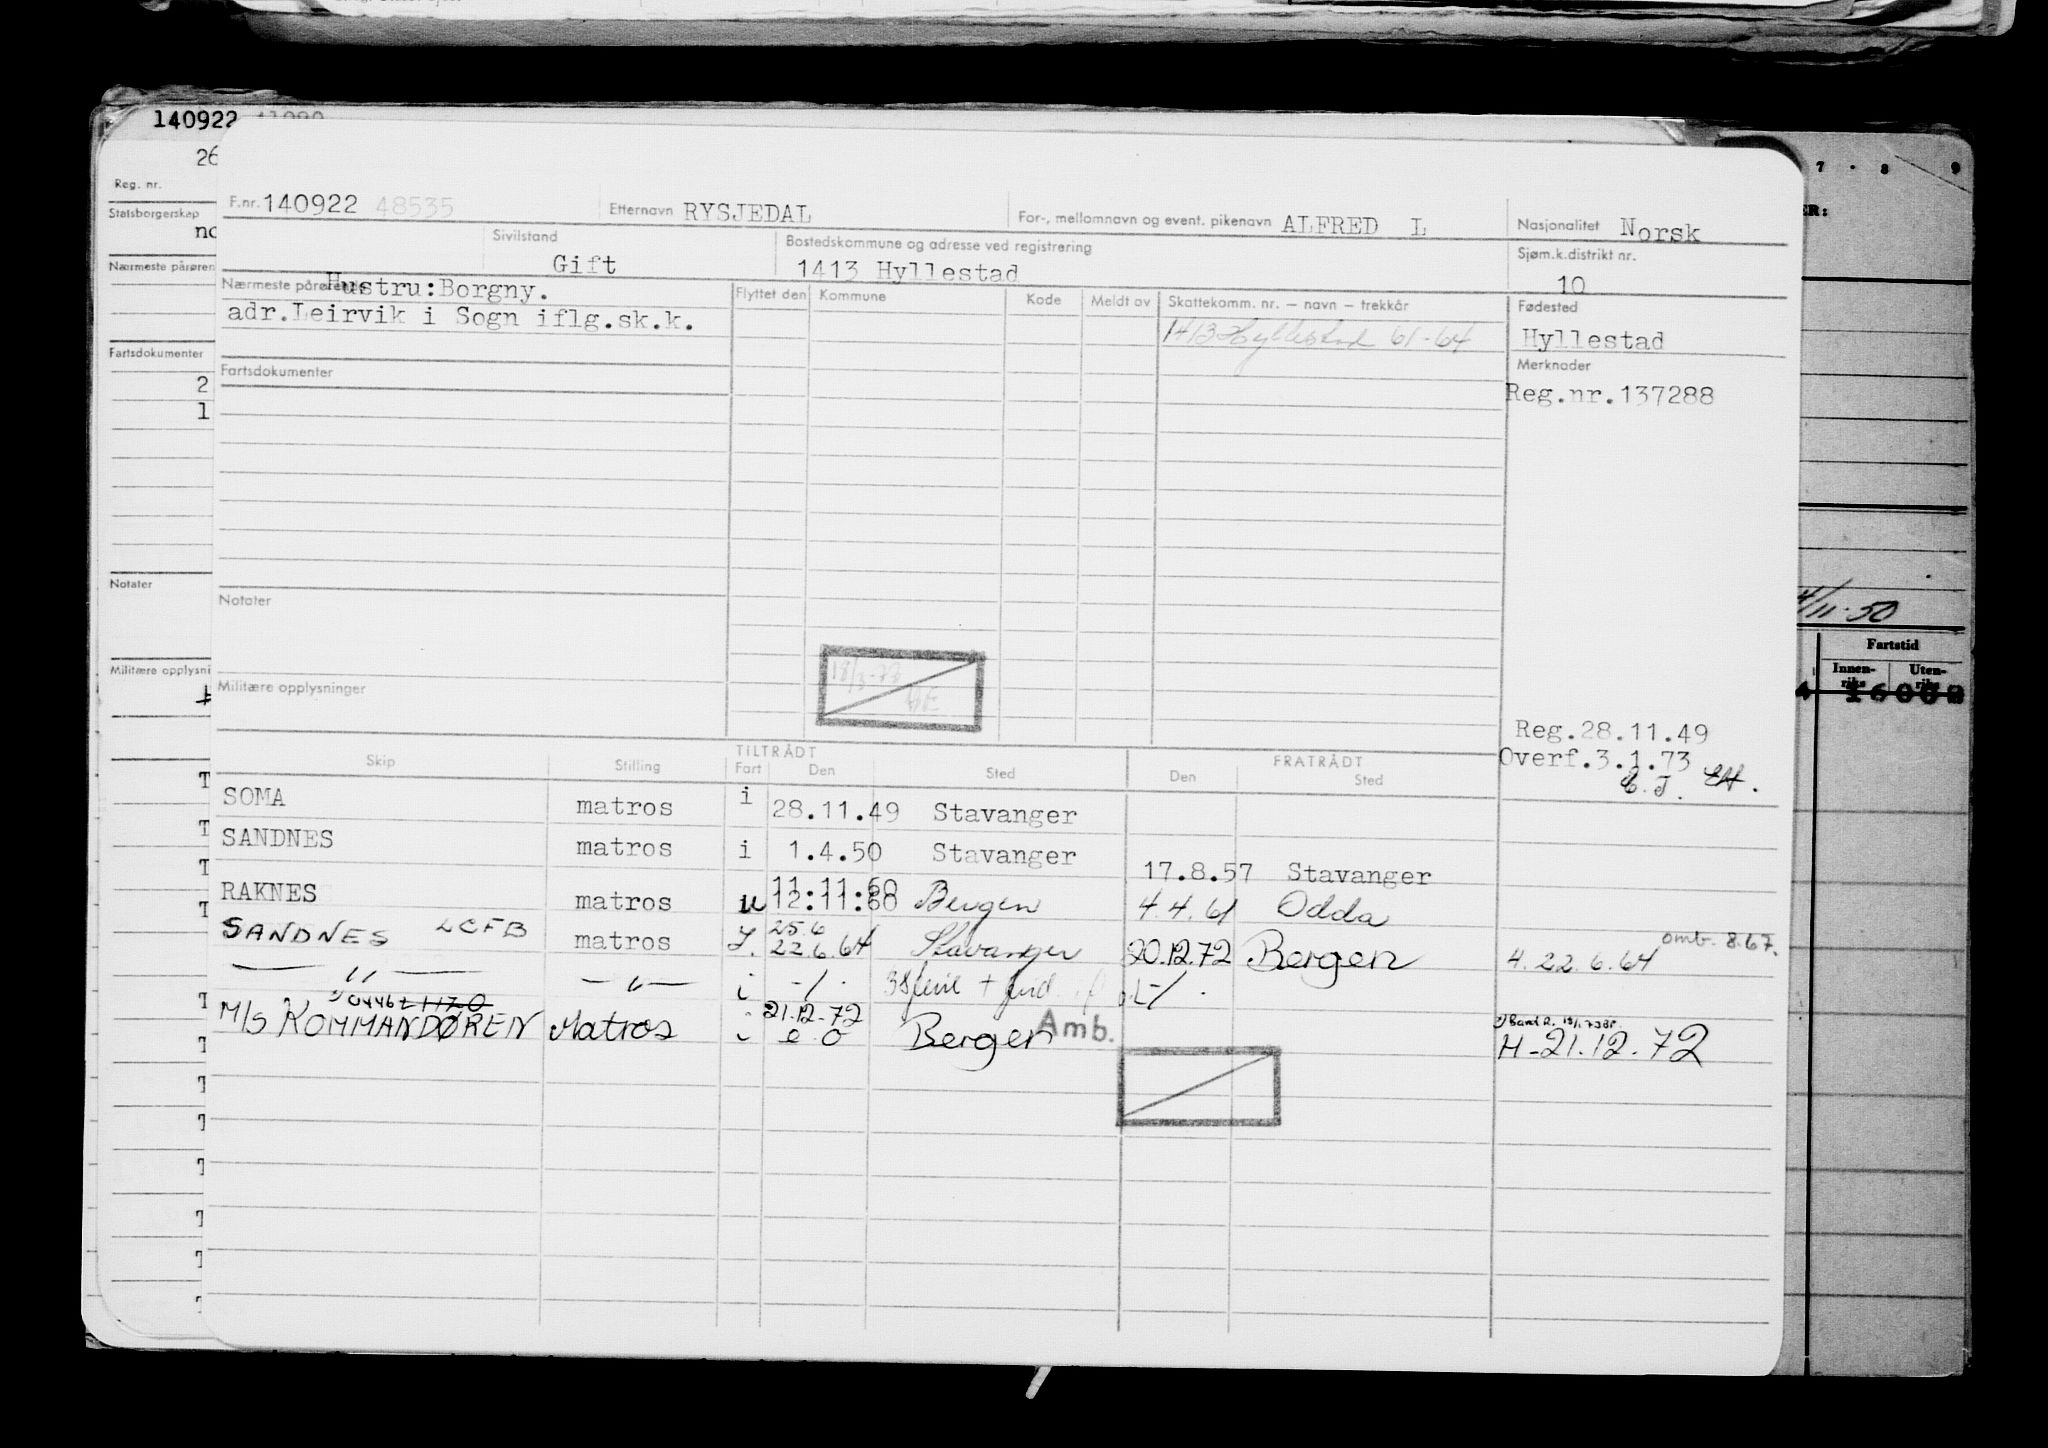 140922
26
Reg. nr.
Statsborgerskap
Nærmeste pårøren
Fartsdokumenter
2
1
Notater
Militære opplysni
F.nr. 140922 48535 Etternavn RYSJEDAL For-, mellomnavn og event. pikenavn ALFRED L Nasjonalitet Norsk
Sivilstand Gift Bostedskommune og adresse ved registrering 1413 Hyllestad Sjøm.k.distrikt nr. 10
Nærmeste pårørende Hustru:Borgny.
adr.Leirvik i Sogn iflg.sk.k.
Flyttet den Kommune Kode Meldt av Skattekomm. nr. – navn – trekkår
1413 Hyllestad 61-64
Fødested
Hyllestad
Merknader
Reg.nr.137288
Fartsdokumenter
Notater
Militære opplysninger
18/3-73
Reg.28.11.49
Overf.3.1.73
TILTRÅDT FRATRÅDT
Skip Stilling Fart Den Sted Den Sted
SOMA matros i 28.11.49 Stavanger
SANDNES matros i 1.4.50 Stavanger 17.8.57 Stavanger
RAKNES matros u 11.11.60 12.11.60 Bergen 4.4.61 Odda
SANDNES LCFB matros 25.6 22.6.64 Stavanger 20.12.72 Bergen 4. 22.6.64 omb. 8.67.
— " — — " — i -/.
0446
M/S KOMMANDØREN Matros i 21.12.72 Bergen Amb. H-21.12.72
7 . 8 9
ER:
4/11-50
Fartstid
Innen-riks Uten-riks